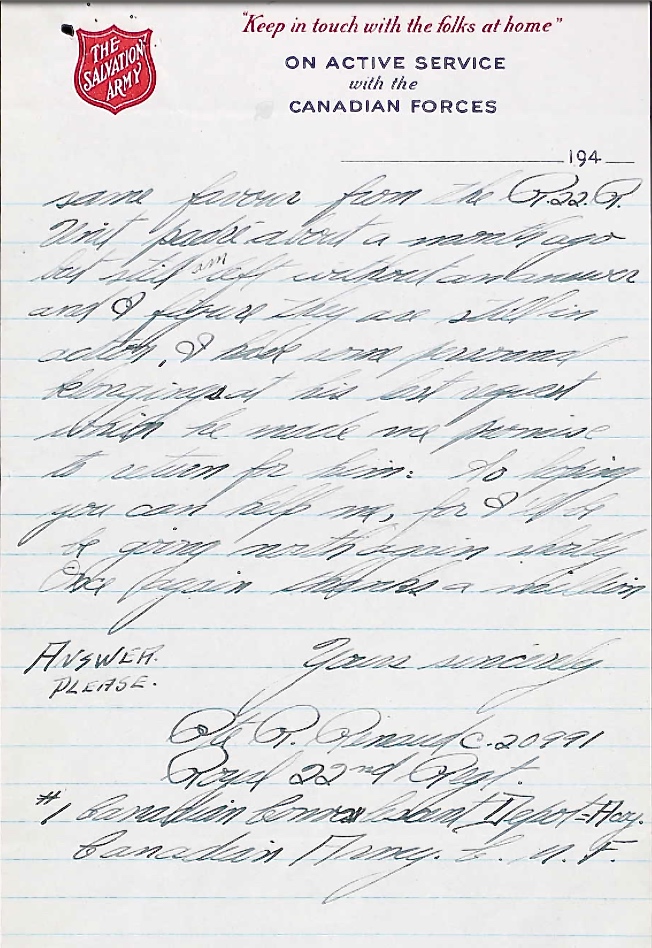 THE
SALVATION
ARMY
"Keep in touch with the folks at home"
ON ACTIVE SERVICE
with the
CANADIAN FORCES
194
same favour from the R.22.R.
Unit padré about a month ago
but still am left without an answer
and I figure they are still in
action, I have some personal
belongings at his last request
which he made me promise
to return for him: So hoping
you can help me, for I'll be
be going north again shortly
Once again thanks a million
ANSWER.
PLEASE.
Yours sincerely
Pte R. Renaud C.20991
Royal 22nd Rgt.
#1 Canadian Depot
Canadian Army. C. M. F.